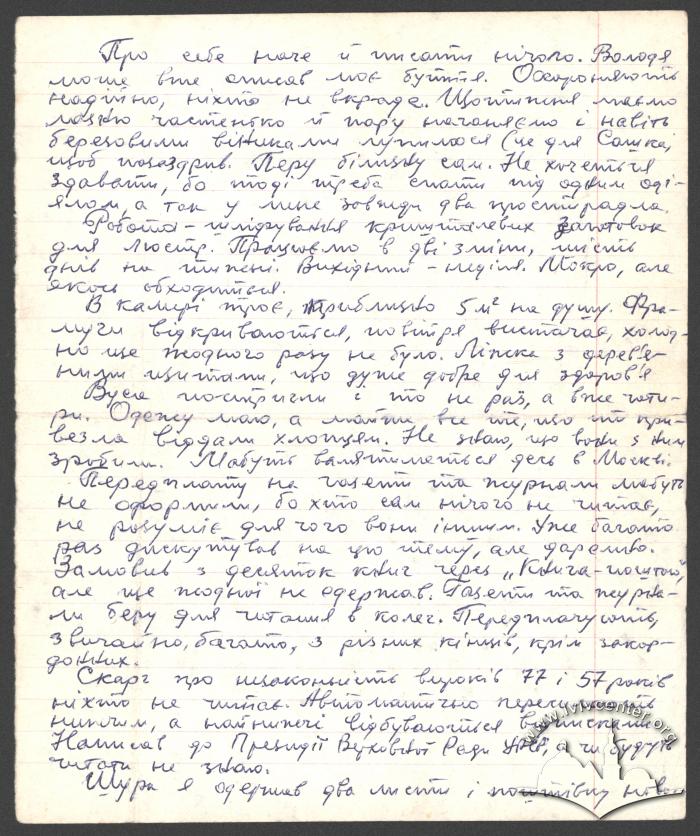 Про себе наче й писати нічого. Володя
може вже описав моє буття. Охороняють
надійно, ніхто не вкраде. Щотижня маємо
лазню частенько й пару наганяємо і навіть
березовими віниками лупимося (це для Сашка,
щоб позаздрив. Перу білизну сам. Не хочеться
здавати, бо тоді треба спати під одним оді-
ялом, а так у мене завжди два простирадла.
Робота - шліфування кришталевих заготовок
для люстр. Працюємо в дві зміни, шість
днів на тижні. Вихідний - неділя. Мокро, але
якось обходиться.
В камері троє, приблизно 5 м² на душу. Фра-
муги відкриваються, повітря вистачає, холод-
но ще жодного разу не було. Ліжка з дерев'я-
ними щитами, що дуже добре для здоров'я
Вуса постригли і то не раз, а вже чоти-
ри. Одежу маю, а майже все те, що ти при-
везла віддали хлопцям. Не знаю, що вони з ним
зробили. Мабуть валятиметься десь в Москві.
Передплату на газети та журнали мабуть
не оформили, бо хто сам нічого не читає,
не розуміє для чого вони іншим. Уже багато
раз дискутував на цю тему, але даремно.
Замовив з десяток книг через „Книга-поштой",
але ще жодної не одержав. Газети та журна-
ли беру для читання в колег. Передплачують,
звичайно, багато, з різних кінців, крім закор-
донних.
Скарг про незаконність вироків 77 і 57 років
ніхто не читає. Автоматично пересилають
нижчим, а найнижчі відбуваються
Написав до Президії Верховної Ради УРСР, а чи будуть
читати не знаю.
Шура я одержав два листи і поштівку
www.lvivcenter.org